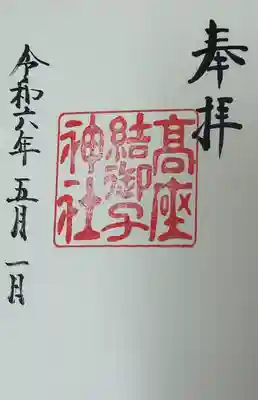 奉拝
高座
結御子
神社
令和六年 五月 一日